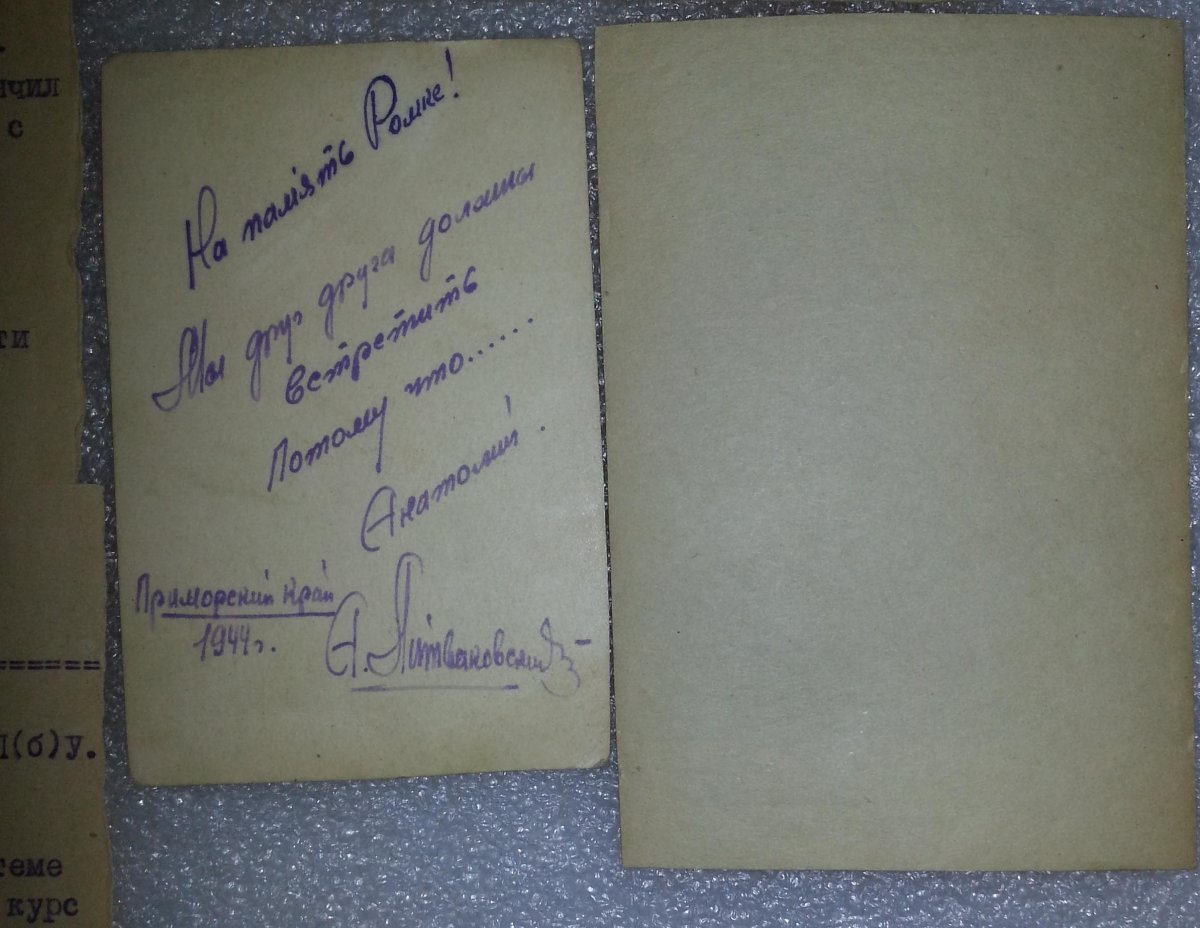 чил
с
ти
======
(б)у.
теме
курс
На пам'ять Ромке!
Мы друг друга должны
встретить
Потому что......
Анатолий.
Приморский край
1944г.
А. Литваковский